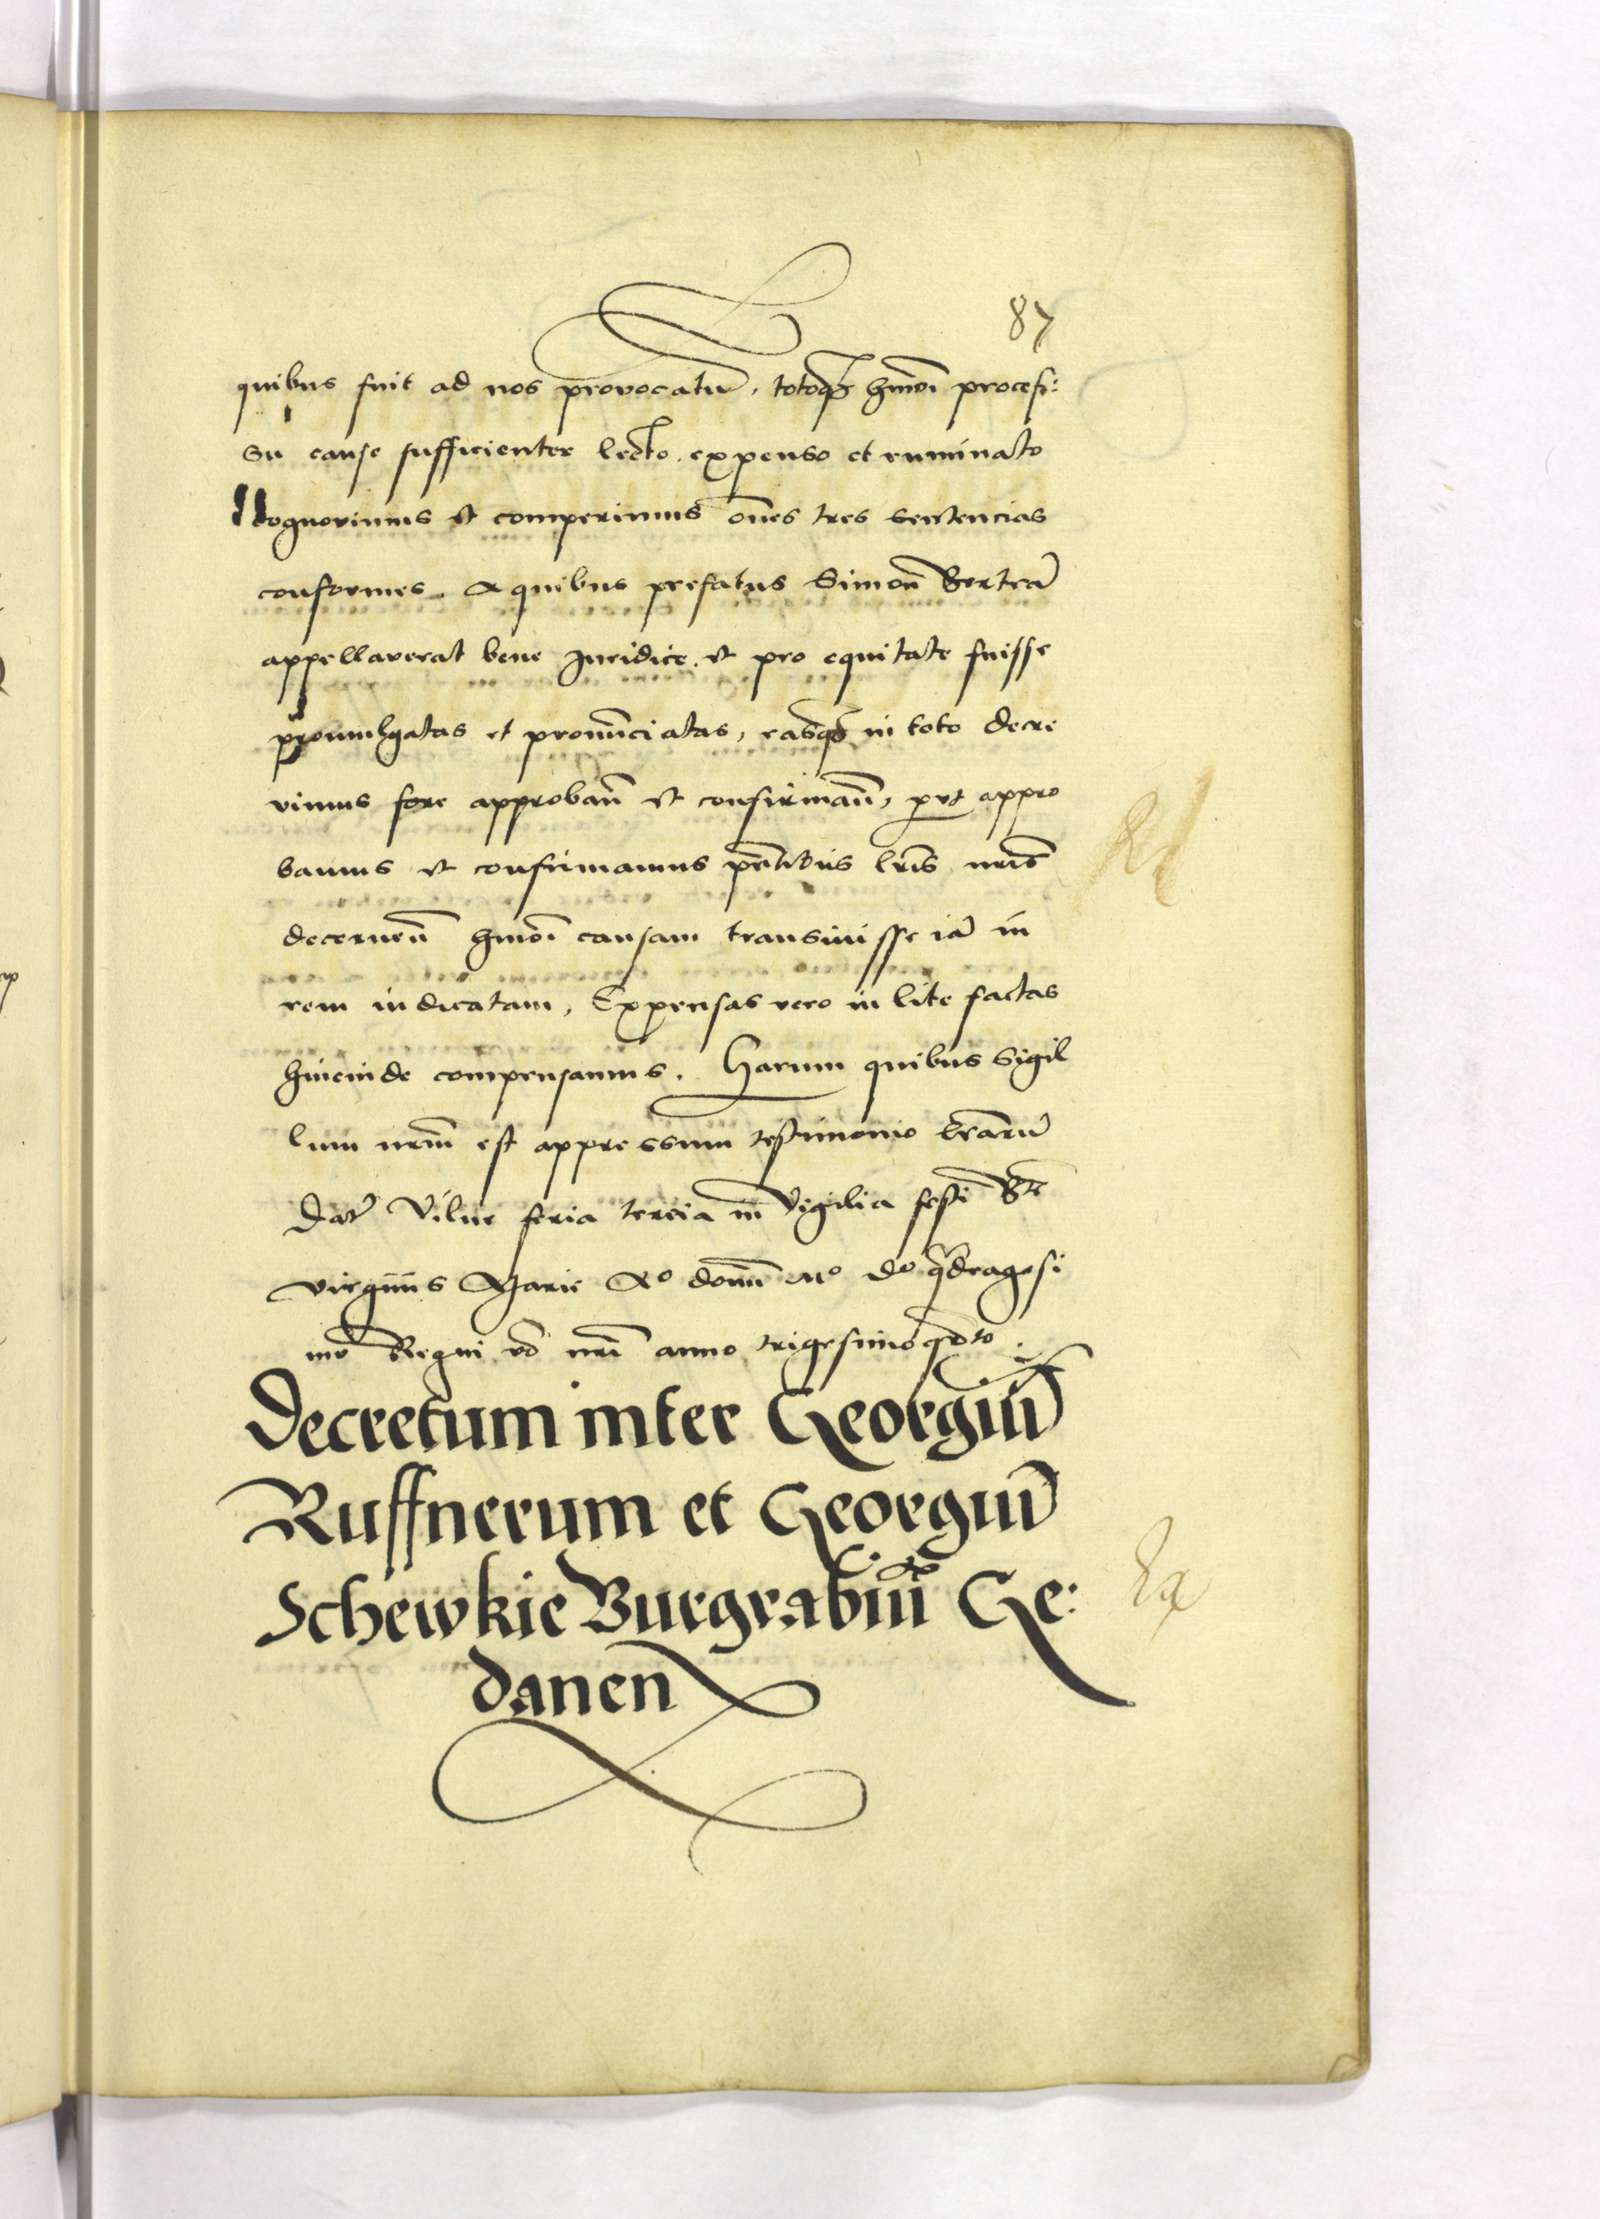 87
quibus fuit ad nos provocatū, totoqȝ hmōi procesſ:
su cause sufficienter lecto expenso et ruminato
Cognovimus et comperimus oēs tres sentencias
conformes. A quibus prefatus Simon̄ Bertrā
appellaverat bene Juridice et pro equitate fuisse
promulgatas et pronūnciatas, easqȝ in toto decre
vimus fore approbān et confirmān, put appro
bamus et confirmamus pn̄tibus lr̄is nr̄is
decernen̄ hmōi causam transivisse iā in
rem iudicatam, Expensas vero in lite factas
hincinde compensamus. Harum quibus Sigil
lum nr̄m est appressum testimonio lr̄arū
Dat̄ Vilne feria tercia in Vigilia festi Bte
virginis Marie Aº domi Mº dº qdragesi
mo Regni vo nr̄i anno trigesimoqrto
Decretum inter Georgiū
Ruffnerum et Georgiū
Schewkie Burgrabiū Ge:
danen